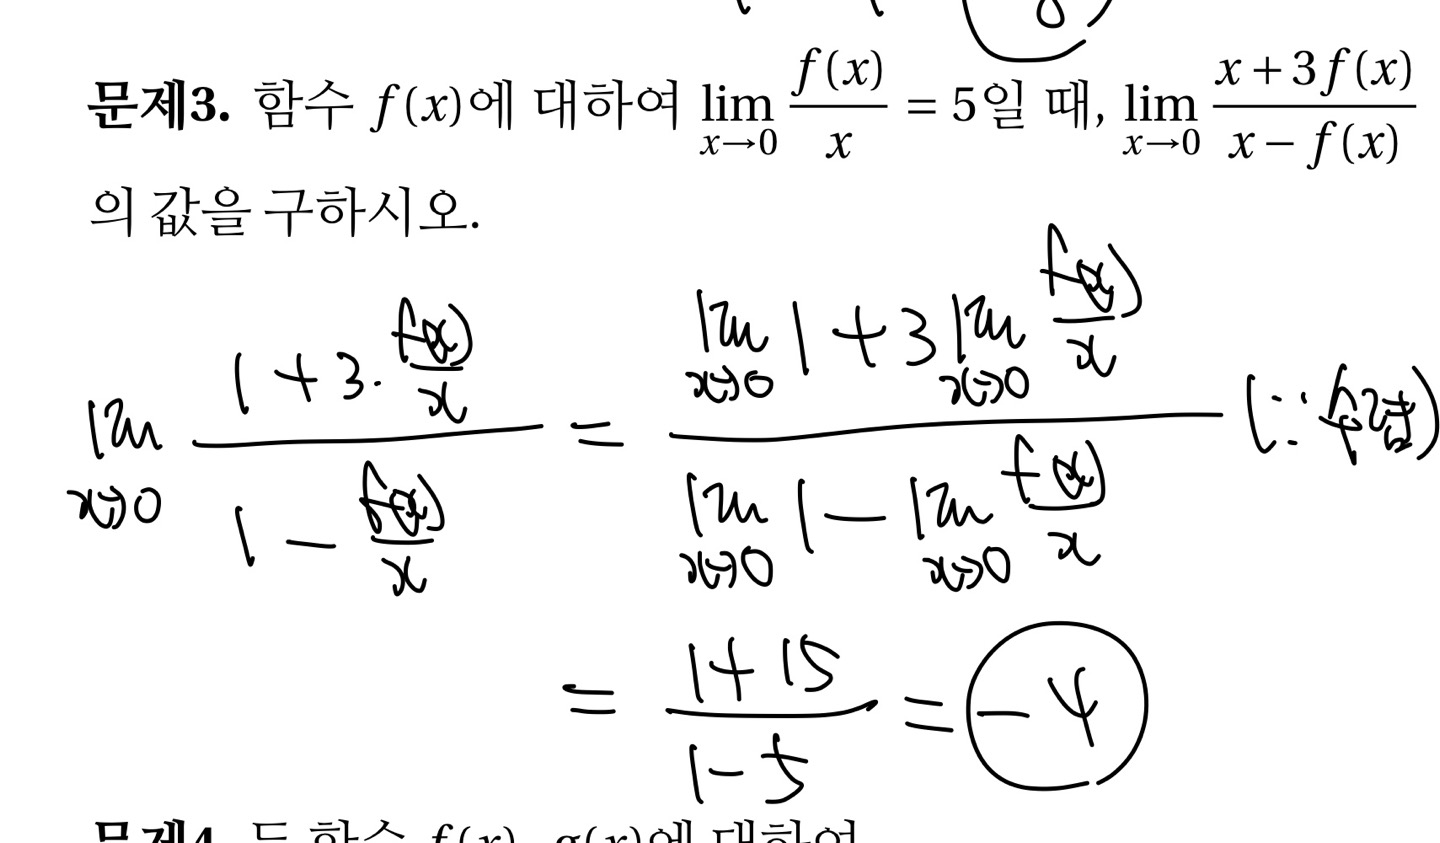 문제3. 함수 f(x)에 대하여 lim x→0 f(x)/x = 5일 때, lim x→0 (x+3f(x))/(x−f(x))
의 값을 구하시오.
lim x→0 (1+3·f(x)/x)/(1−f(x)/x) = (lim x→0 1+3 lim x→0 f(x)/x)/(lim x→0 1−lim x→0 f(x)/x) (∵ 수렴)
= (1+15)/(1−5) = −4
문제4. 두 함수 f(x), g(x)에 대하여